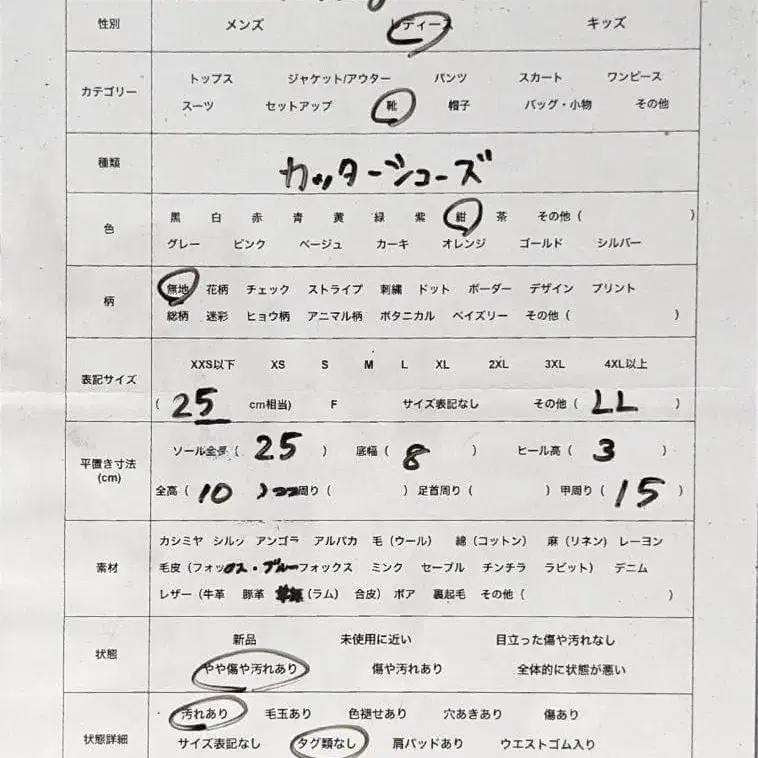 性別 メンズ レディース キッズ
カテゴリー トップス ジャケット/アウター パンツ スカート ワンピース
スーツ セットアップ 靴 帽子 バッグ・小物 その他
種類 カッターシューズ
色 黒 白 赤 青 黄 緑 紫 紺 茶 その他 ( )
グレー ピンク ベージュ カーキ オレンジ ゴールド シルバー
柄 無地 花柄 チェック ストライプ 刺繍 ドット ボーダー デザイン プリント
総柄 迷彩 ヒョウ柄 アニマル柄 ボタニカル ペイズリー その他 ( )
表記サイズ XXS以下 XS S M L XL 2XL 3XL 4XL以上
( 25 cm相当) F サイズ表記なし その他 ( LL )
平置き寸法 (cm) ソール全長 ( 25 ) 底幅 ( 8 ) ヒール高 ( 3 )
全高 ( 10 ) 周り ( ) 足首周り ( ) 甲周り ( 15 )
素材 カシミヤ シルク アンゴラ アルパカ 毛 (ウール) 綿 (コットン) 麻 (リネン) レーヨン
毛皮 (フォックス・ブルーフォックス ミンク セーブル チンチラ ラビット) デニム
レザー (牛革 豚革 (ラム) 合皮) ボア 裏起毛 その他 ( )
状態 新品 未使用に近い 目立った傷や汚れなし
やや傷や汚れあり 傷や汚れあり 全体的に状態が悪い
状態詳細 汚れあり 毛玉あり 色褪せあり 穴あきあり 傷あり
サイズ表記なし タグ類なし 肩パッドあり ウエストゴム入り